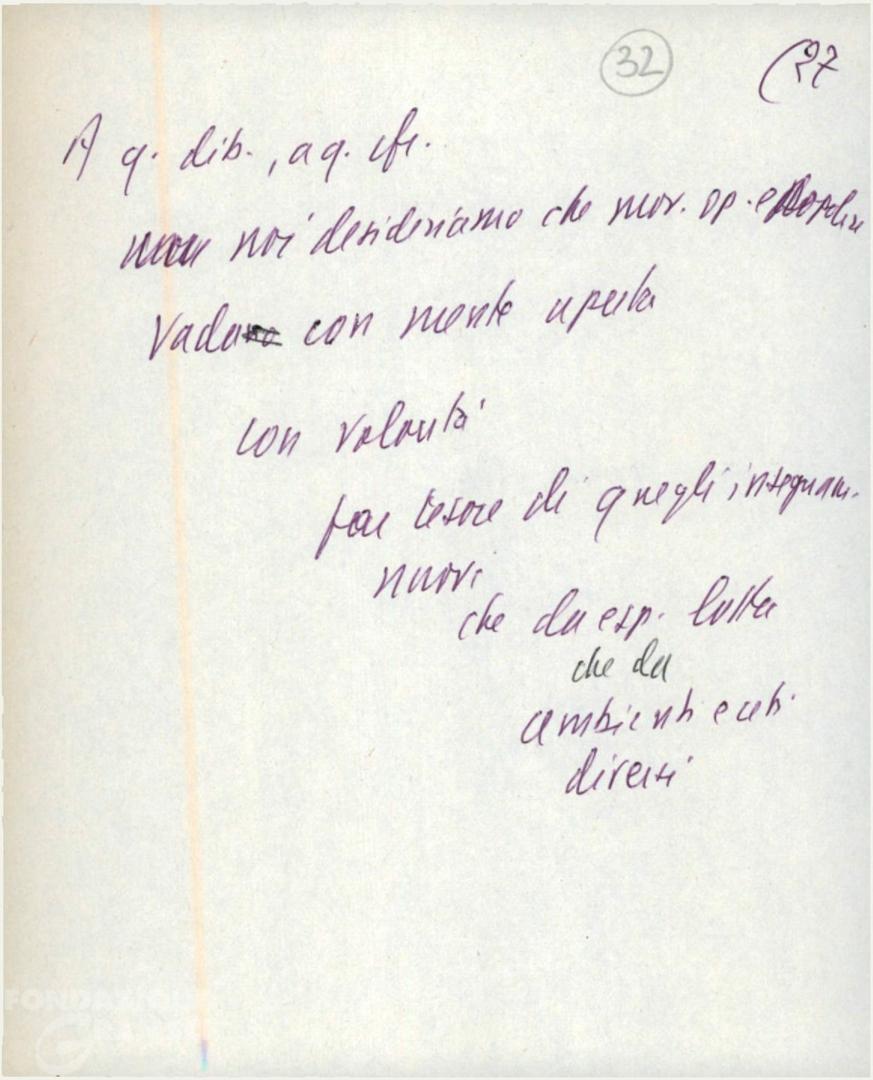 32
(27
A q. dib., a q. cfr.
noi desideriamo che mov. op. e
vada con mente aperta
con volontà
far tesoro di quegli insegnam.
nuovi
che da esp. lotta
che da
ambienti e ceti
diversi
FONDAZIONE